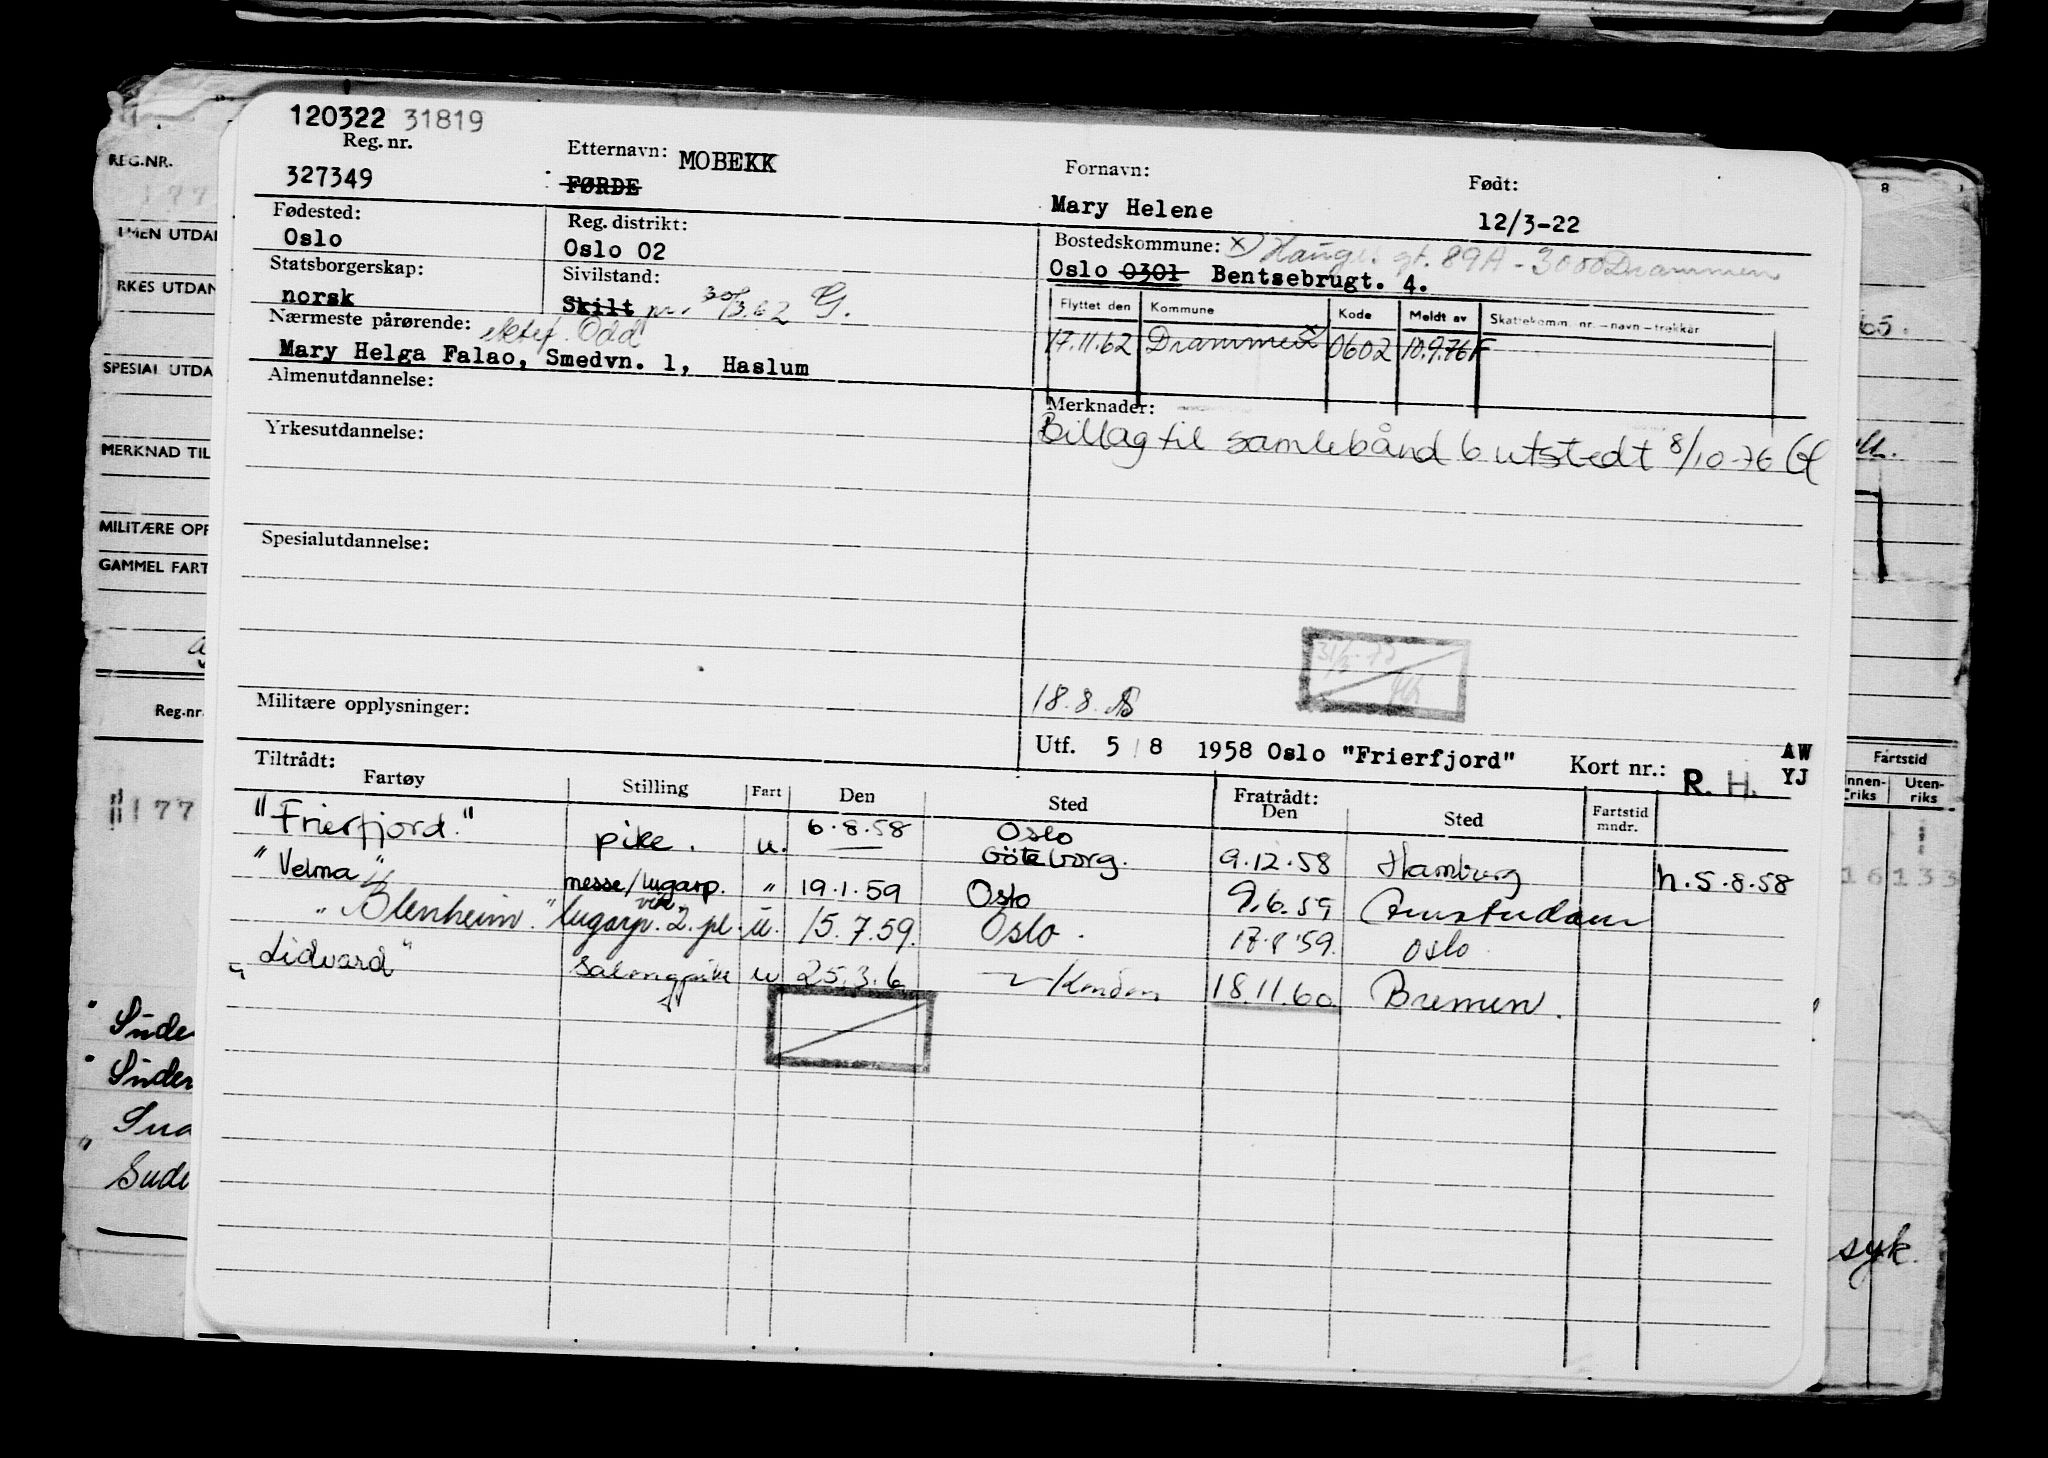 120322 31819
Reg. nr.
327349
Etternavn: MOBEKK
FØRDE
Fornavn:
Mary Helene
Født:
12/3-22
Fødested:
Oslo
Reg. distrikt:
Oslo 02
Bostedskommune: x) gt. 89A - 3000 Drammen
Oslo 0301 Bentsebrugt. 4.
Statsborgerskap:
norsk
Sivilstand:
Skilt 30/3.62 G.
Flyttet den Kommune Kode Meldt av Skattekomm. nr. – navn – trekkar
17.11.62 Drammen x 0602 10.9.76 F
Nærmeste pårørende: ektef. Odd
Mary Helga Falao, Smedvn. 1, Haslum
Almenutdannelse:
Merknader:
Billag til samlebånd 6 utstedt 8/10-76
Yrkesutdannelse:
Spesialutdannelse:
Militære opplysninger:
18.8.
Utf. 5/8 1958 Oslo "Frierfjord" Kort nr.: R. H. AW
YJ
Tiltrådt:
Fartøy Stilling Fart Den Sted
Fratrådt:
Den Sted Fartstid
mndr.
"Frierfjord." pike. u. 6.8.58 Oslo
Göteborg. 9.12.58 Hamburg h.5.8.58
"Velma" messe/lugarp. " 19.1.59 Oslo 9.6.59 Amsterdam
"Blenheim." lugarp. 2. pl. u. 15.7.59. Oslo. 17.8.59. Oslo
"Lidvard" salongpike u 25.3.6 18.11.60 Bremen.
REG.NR.
MERKNAD TIL
GAMMEL FART
Reg.nr.
177
Fartstid
Innen-
riks
Uten-
riks
8
65.
16 133
syk.